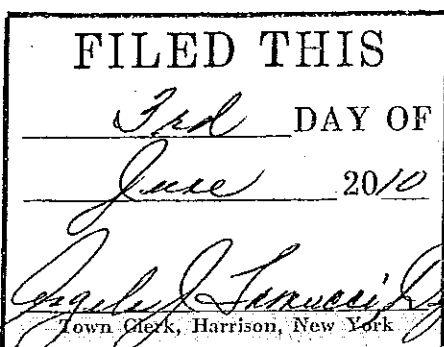 FILED THIS
3rd DAY OF
June 2010
Angela J.
Town Clerk, Harrison, New York